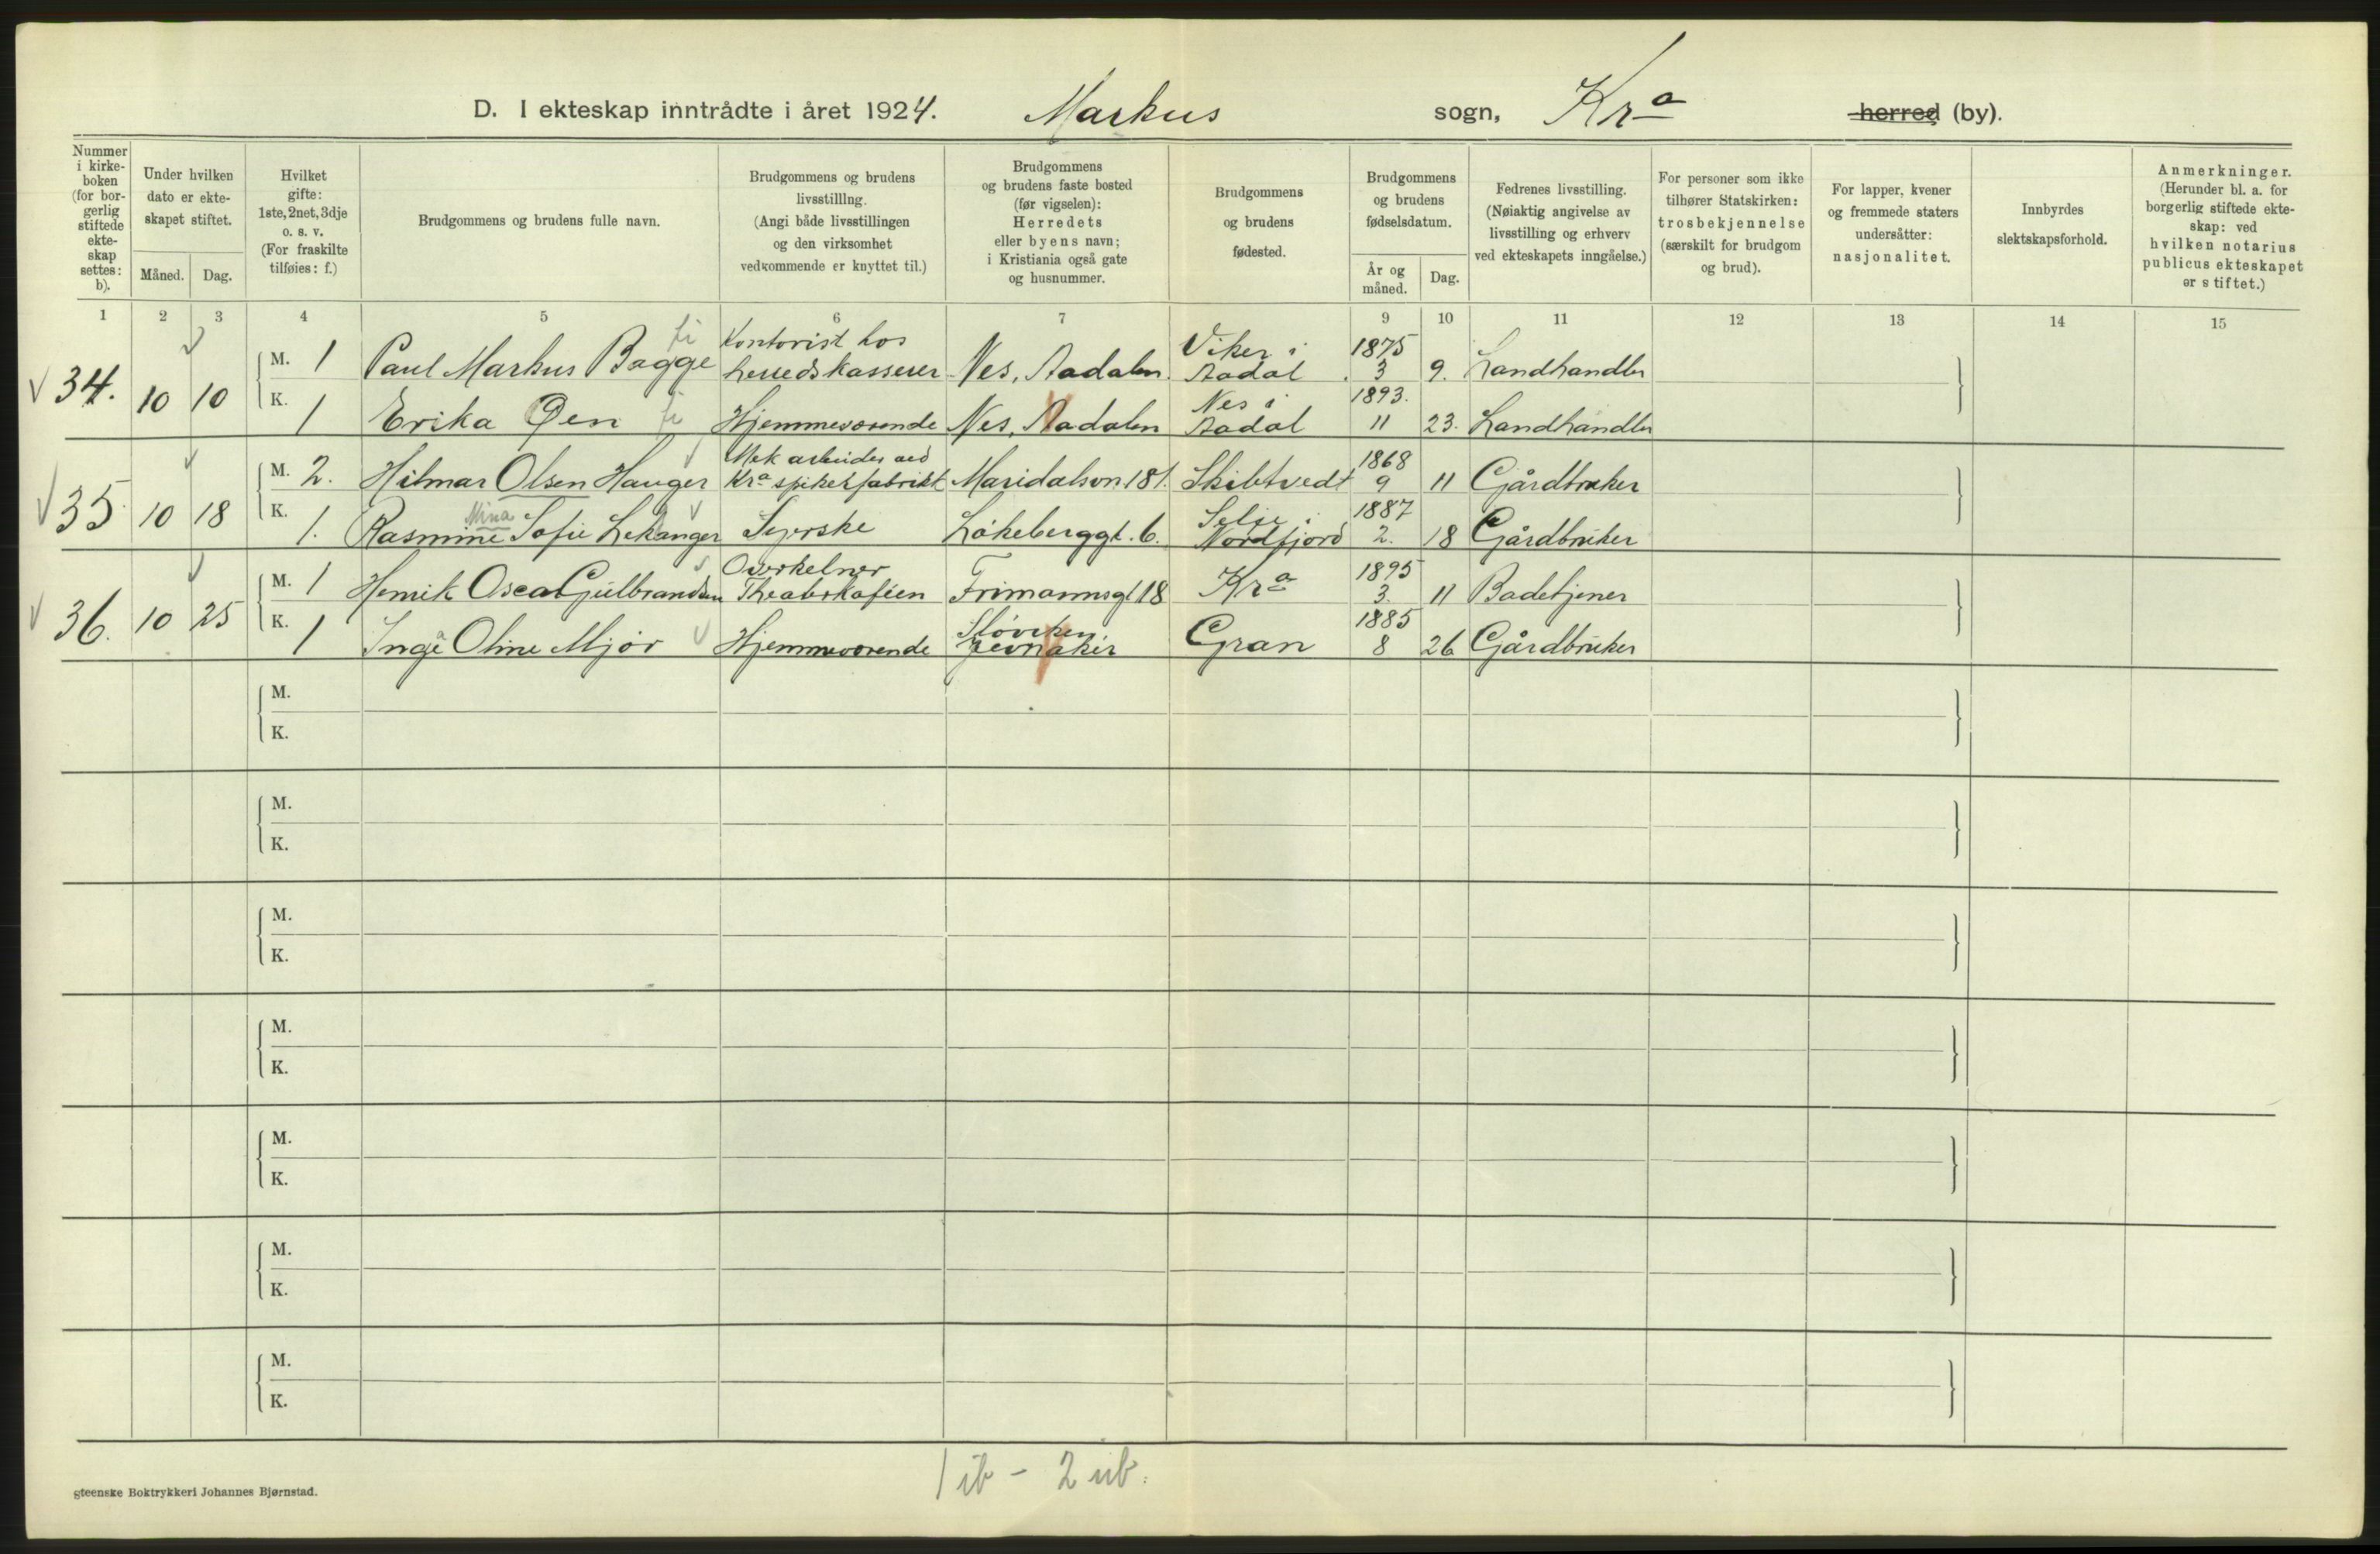 D. I ekteskap inntrådte i året 1924. Markus sogn, Kra herred (by).
Nummer i kirke- boken (for bor- gerlig stiftede ekte- skap settes: b).
Under hvilken dato er ekte- skapet stiftet.
Måned. Dag.
Hvilket gifte: 1ste, 2net, 3dje o. s. v. (For fraskilte tilføies: f.)
Brudgommens og brudens fulle navn.
Brudgommens og brudens livsstilllng. (Angi både livsstillingen og den virksomhet vedkommende er knyttet til.)
Brudgommens og brudens faste bosted (før vigselen): Herredets eller byens navn; i Kristiania også gate og husnummer.
Brudgommens og brudens fødested.
Brudgommens og brudens fødselsdatum.
År og måned. Dag.
Fedrenes livsstilling. (Nøiaktig angivelse av livsstilling og erhverv ved ekteskapets inngåelse.)
For personer som ikke tilhører Statskirken: trosbekjennelse (særskilt for brudgom og brud).
For lapper, kvener og fremmede staters undersåtter: nasjonalitet.
Innbyrdes slektskapsforhold.
Anmerkninger. (Herunder bl. a. for borgerlig stiftede ekte- skap: ved hvilken notarius publicus ekteskapet er stiftet.)
1 2 3 4 5 6 7 9 10 11 12 13 14 15
34. 10 10
M. 1 Paul Markus Bagge Kontorist hos herredskasserer Nes, Aadalen. Viker i Aadal 1875 3 9. Landhandler
K. 1 Erika Øen Hjemmeværende Nes, Aadalen Nes i Aadal 1893. 11 23. Landhandler
35 10 18
M. 2. Hilmar Olsen Hauger Mek arbeider ved Kra spikerfabrikk Maridalsvn. 181. Skibtvedt 1868 9 11 Gårdbruker
K. 1. Rasmine Mina Sofie Lekanger Syerske Løkeberggt. 6. Selje i Nordfjord 1887 2. 18 Gårdbruker
36. 10 25
M. 1 Henrik Oscar Gulbrandsen Overkelner Theaterkaféen Frimannsgt 18 Kra 1895 3. 11 Badetjener
K. 1 Inga Oline Mjør Hjemmeværende Jevnaker Gran 1885 8 26 Gårdbruker
M.
K.
M.
K.
M.
K.
M.
K.
M.
K.
M.
K.
M.
K.
1 ib - 2 ub.
gteenske Boktrykkeri Johannes Bjørnstad.